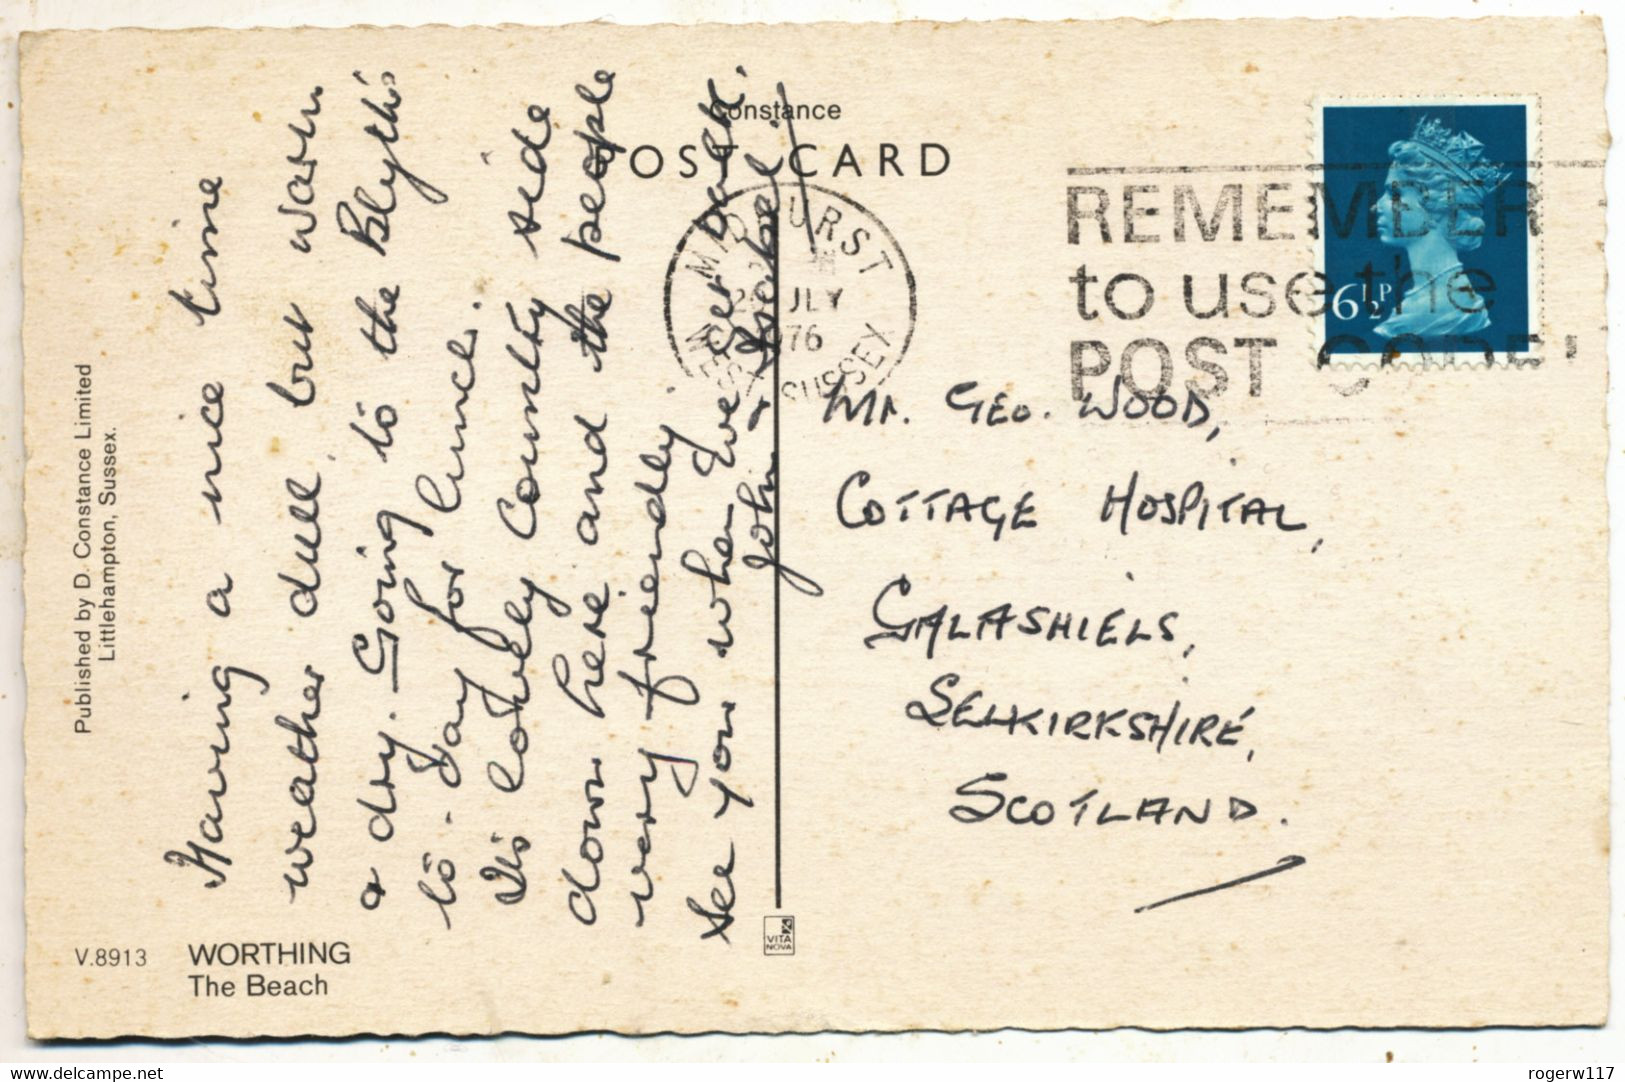 Constance
POST CARD
MIDHURST
JLY
1976
WEST SUSSEX
REMEMBER
to use the
POST CODE
6½P
Having a nice time
weather dull, but warm
& dry. Going to the Blyth's
to-day for lunch.
It's lovely country side
down here and the people
very friendly.
See you when ever back.
John & Isobel.
Mr. Geo. Wood,
Cottage Hospital,
Galashiels,
Selkirkshire,
Scotland.
Published by D. Constance Limited
Littlehampton, Sussex.
V.8913 WORTHING
The Beach
VITA
NOVA
delcampe.net
rogerw117